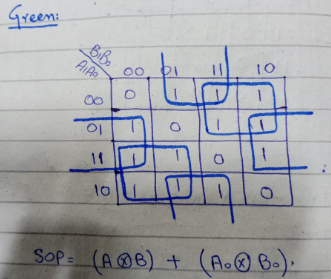 Green:
B₁B₀
A₁A₀
00 01 11 10
00 0 1 1 1
01 1 0 1 1
11 1 1 0 1
10 1 1 1 0
SOP = (A⊗B) + (A₀⊗B₀).